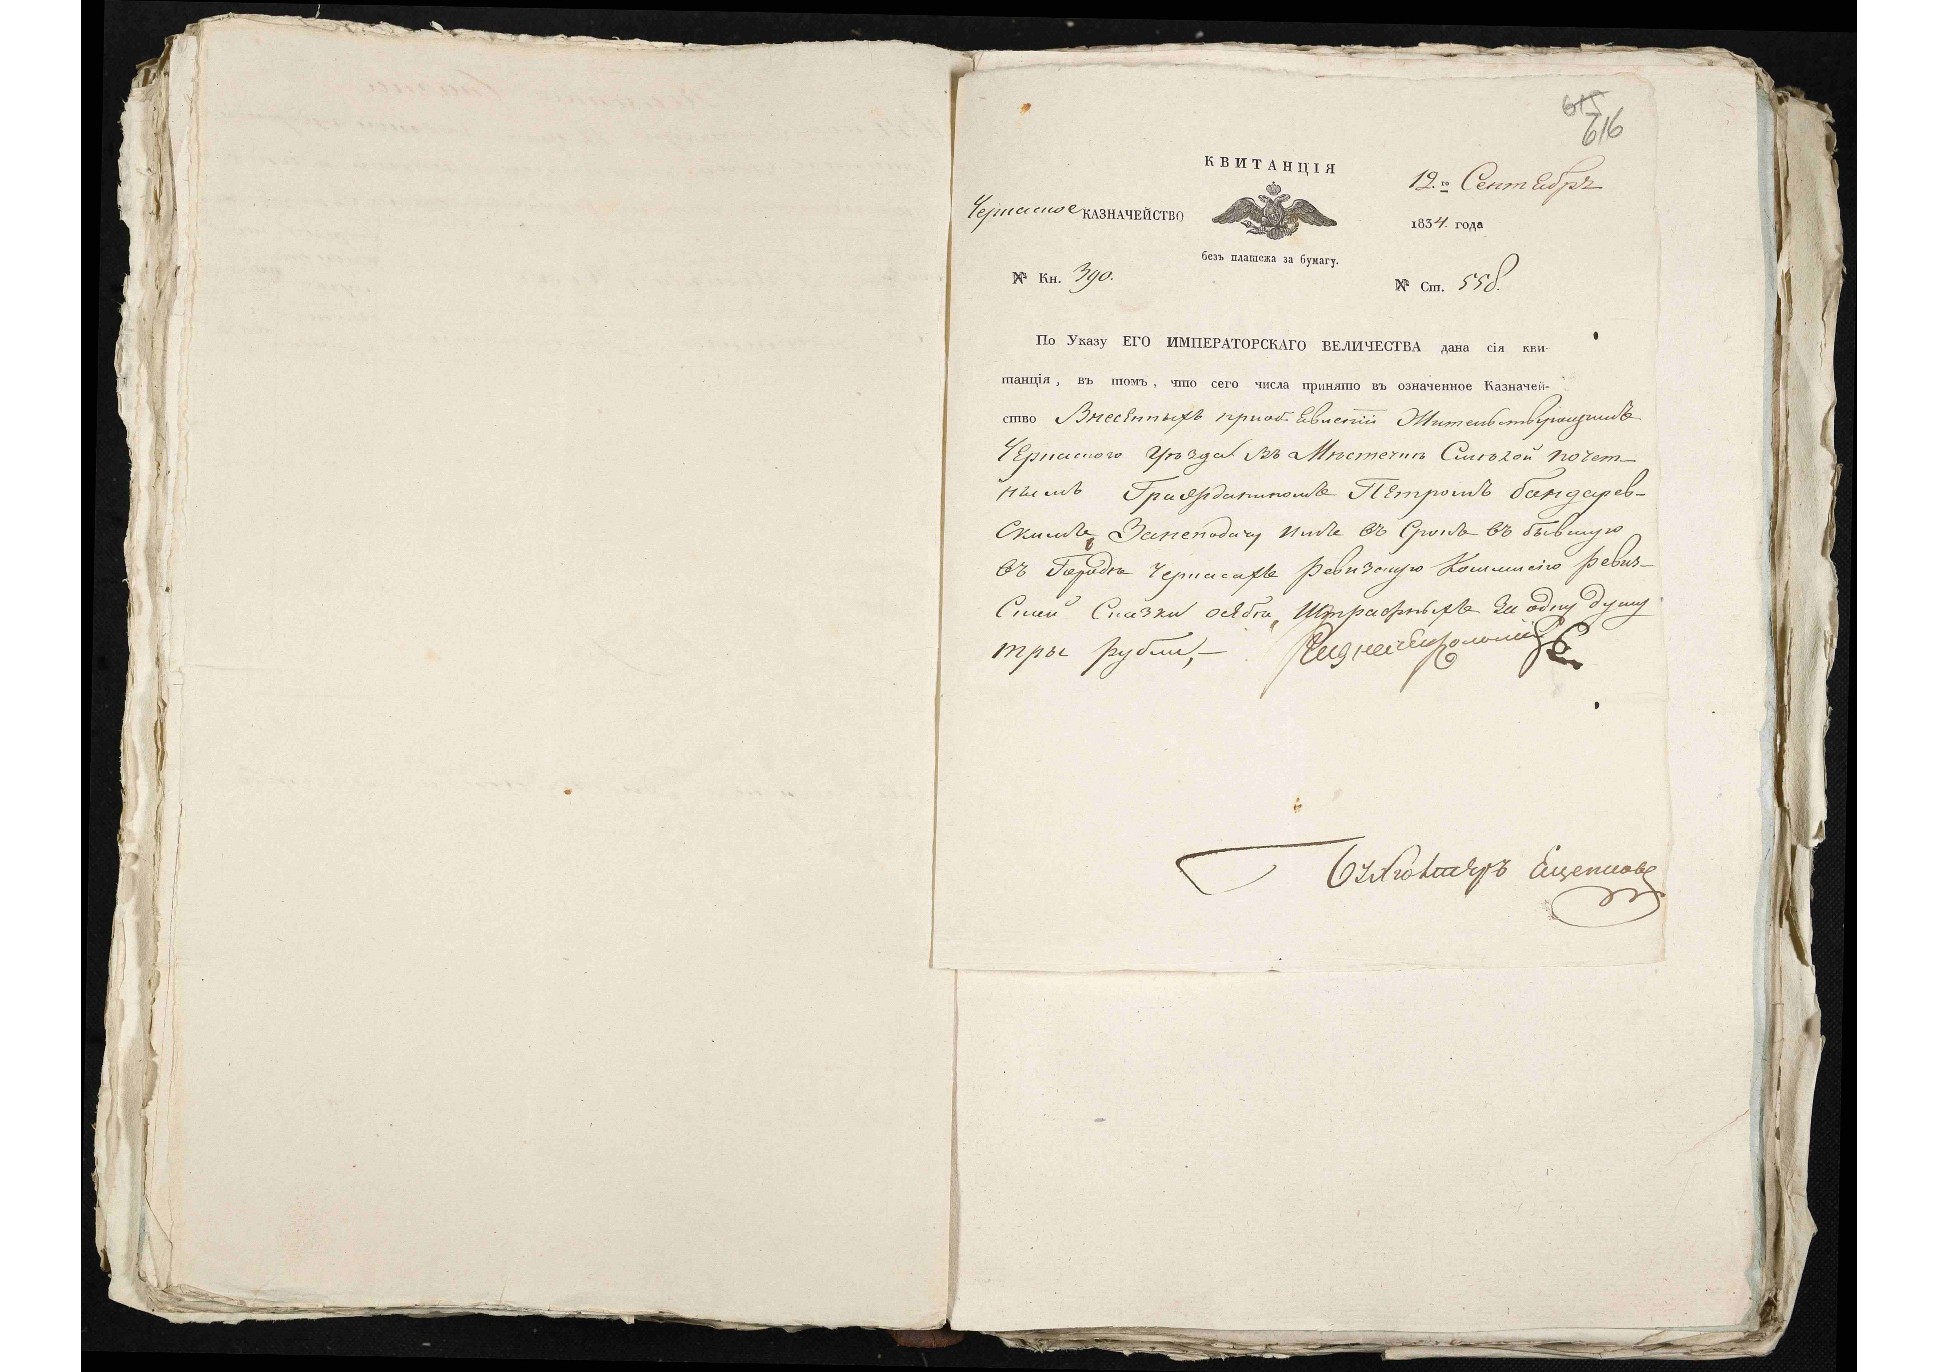 615
616
КВИТАНЦІЯ
12.го Сентября
Черкаское КАЗНАЧЕЙСТВО
1834. года
безъ платежа за бумагу.
№ Кн. 390.
№ Ст. 558.
По Указу ЕГО ИМПЕРАТОРСКАГО ВЕЛИЧЕСТВА дана сія кви-
танція, въ томъ, что сего числа принято въ означенное Казначей-
ство Внесенныхъ Жительствующимъ
Черкаского уезда въ Местечке Смелой почет-
нымъ Гражданиномъ Петромъ Бандарев-
скимъ, Занеподачу имъ въ Срокъ въ бывшую
въ Городе Черкасахъ Ревизскую Коммисію Ревиз-
Ской Сказки осебе, Штрафныхъ за одну душу
три рубли,—
Бухгалтеръ